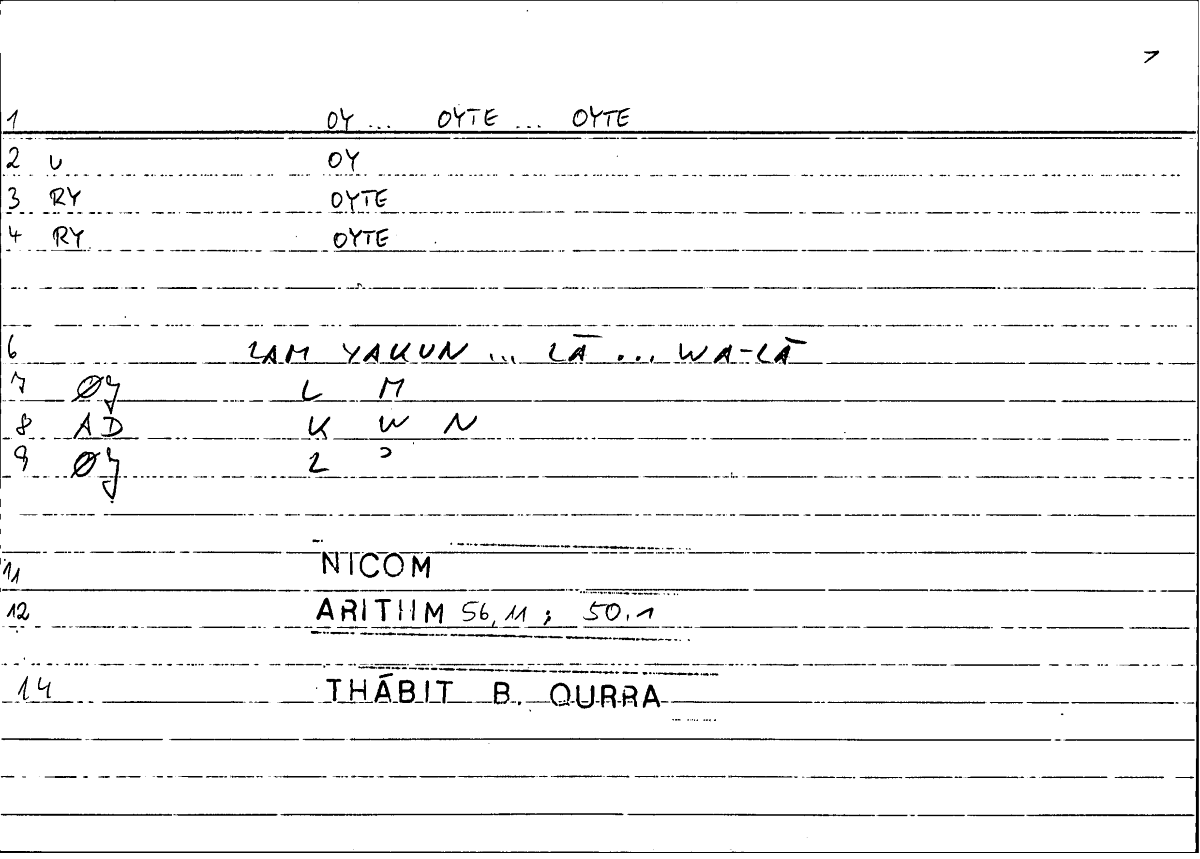 7
1 OY ... OYTE ... OYTE
2 U OY
3 RY OYTE
4 RY OYTE
6 LAM YAKUN ... LĀ ... WA-LĀ
7 ØJ L M
8 AD K W N
9 ØJ L ʾ
11 NICOM
12 ARITHM 56,11 ; 50.1
14 THĀBIT B. QURRA